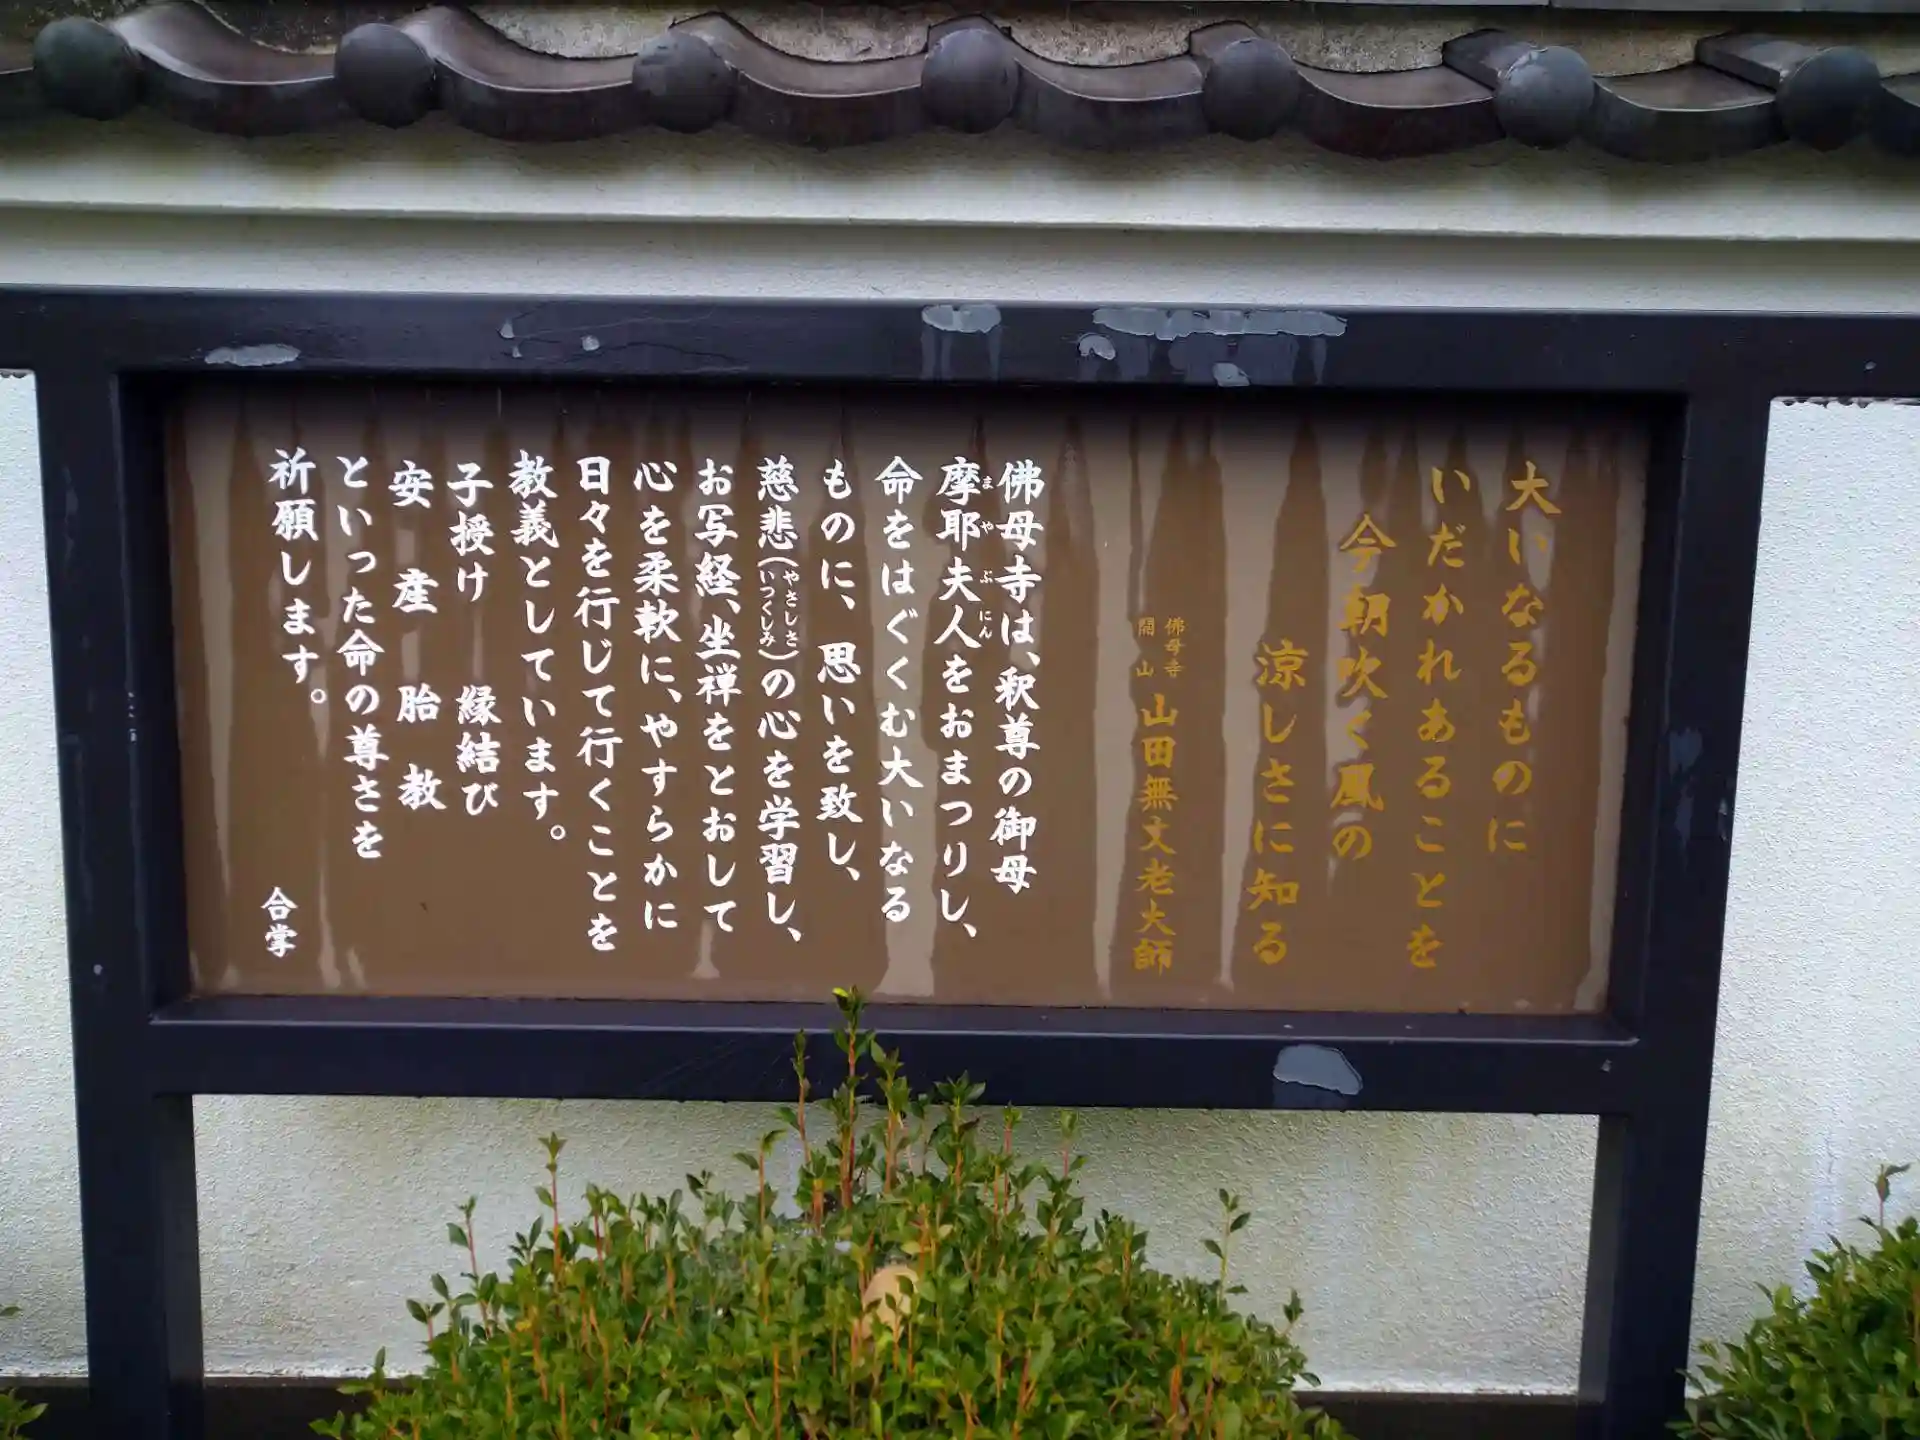 大いなるものに
いだかれあることを
今朝吹く風の
涼しさに知る
佛母寺
開山
山田無文老大師
佛母寺は、釈尊の御母
摩耶夫人をおまつりし、
まやぶにん
命をはぐくむ大いなる
ものに、思いを致し、
慈悲(やさしさいつくしみ)の心を学習し、
お写経、坐禅をとおして
心を柔軟に、やすらかに
日々を行じて行くことを
教義としています。
子授け 縁結び
安産 胎教
といった命の尊さを
祈願します。
合掌